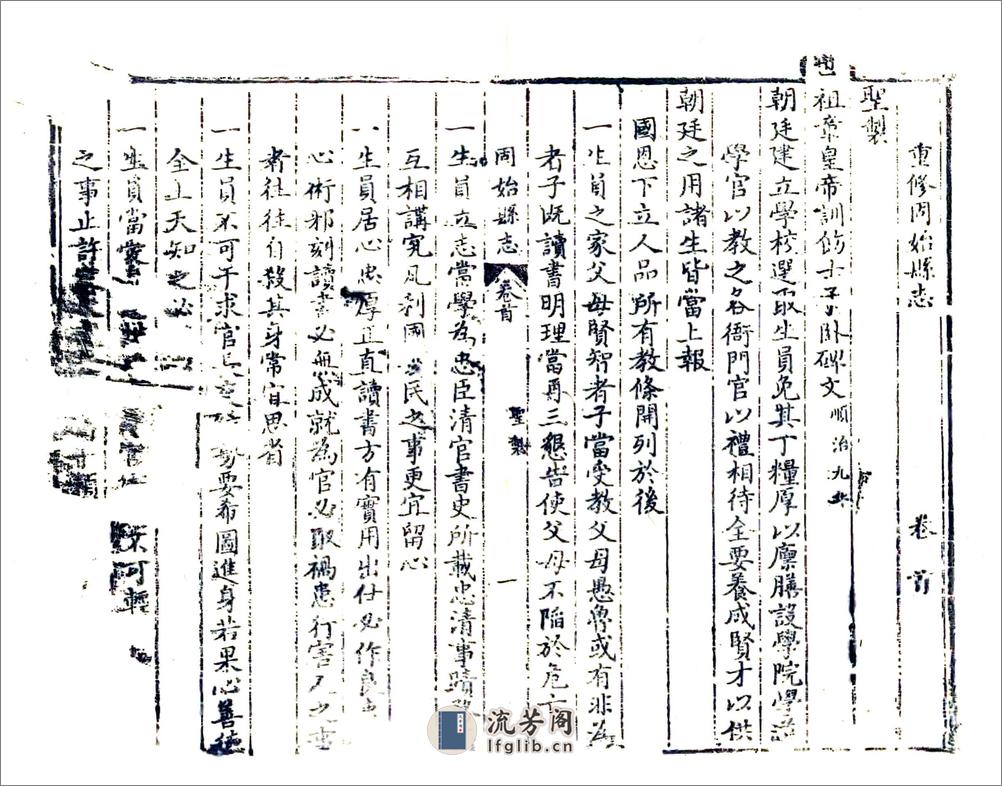 重修固始縣志 卷首
聖製
世祖章皇帝訓飭士子卧碑文 順治九年
朝廷建立學校選取生員免其丁糧厚以廪膳設學院學道
學官以教之各衙門官以禮相待全要養成賢才以供
朝廷之用諸生皆當上報
國恩下立人品所有教條開列於後
一生員之家父母賢智者子當受教父母愚魯或有非為
者子既讀書明理當再三懇告使父母不陷於危亡
固始縣志 卷首 聖製 一
一生員立志當學為忠臣清官書史所載忠清事蹟
互相講究凡利國 民之事更宜留心
一生員居心忠厚正直讀書方有實用出仕必作良
心術邪刻讀書必無成就為官必取禍患行害人之事
者往往自殺其身常宜思省
一生員不可干求官長 勢要希圖進身若果心善德
全上天知之必
一生員當愛 可輕
之事止許
流芳阁
lfglib.cn